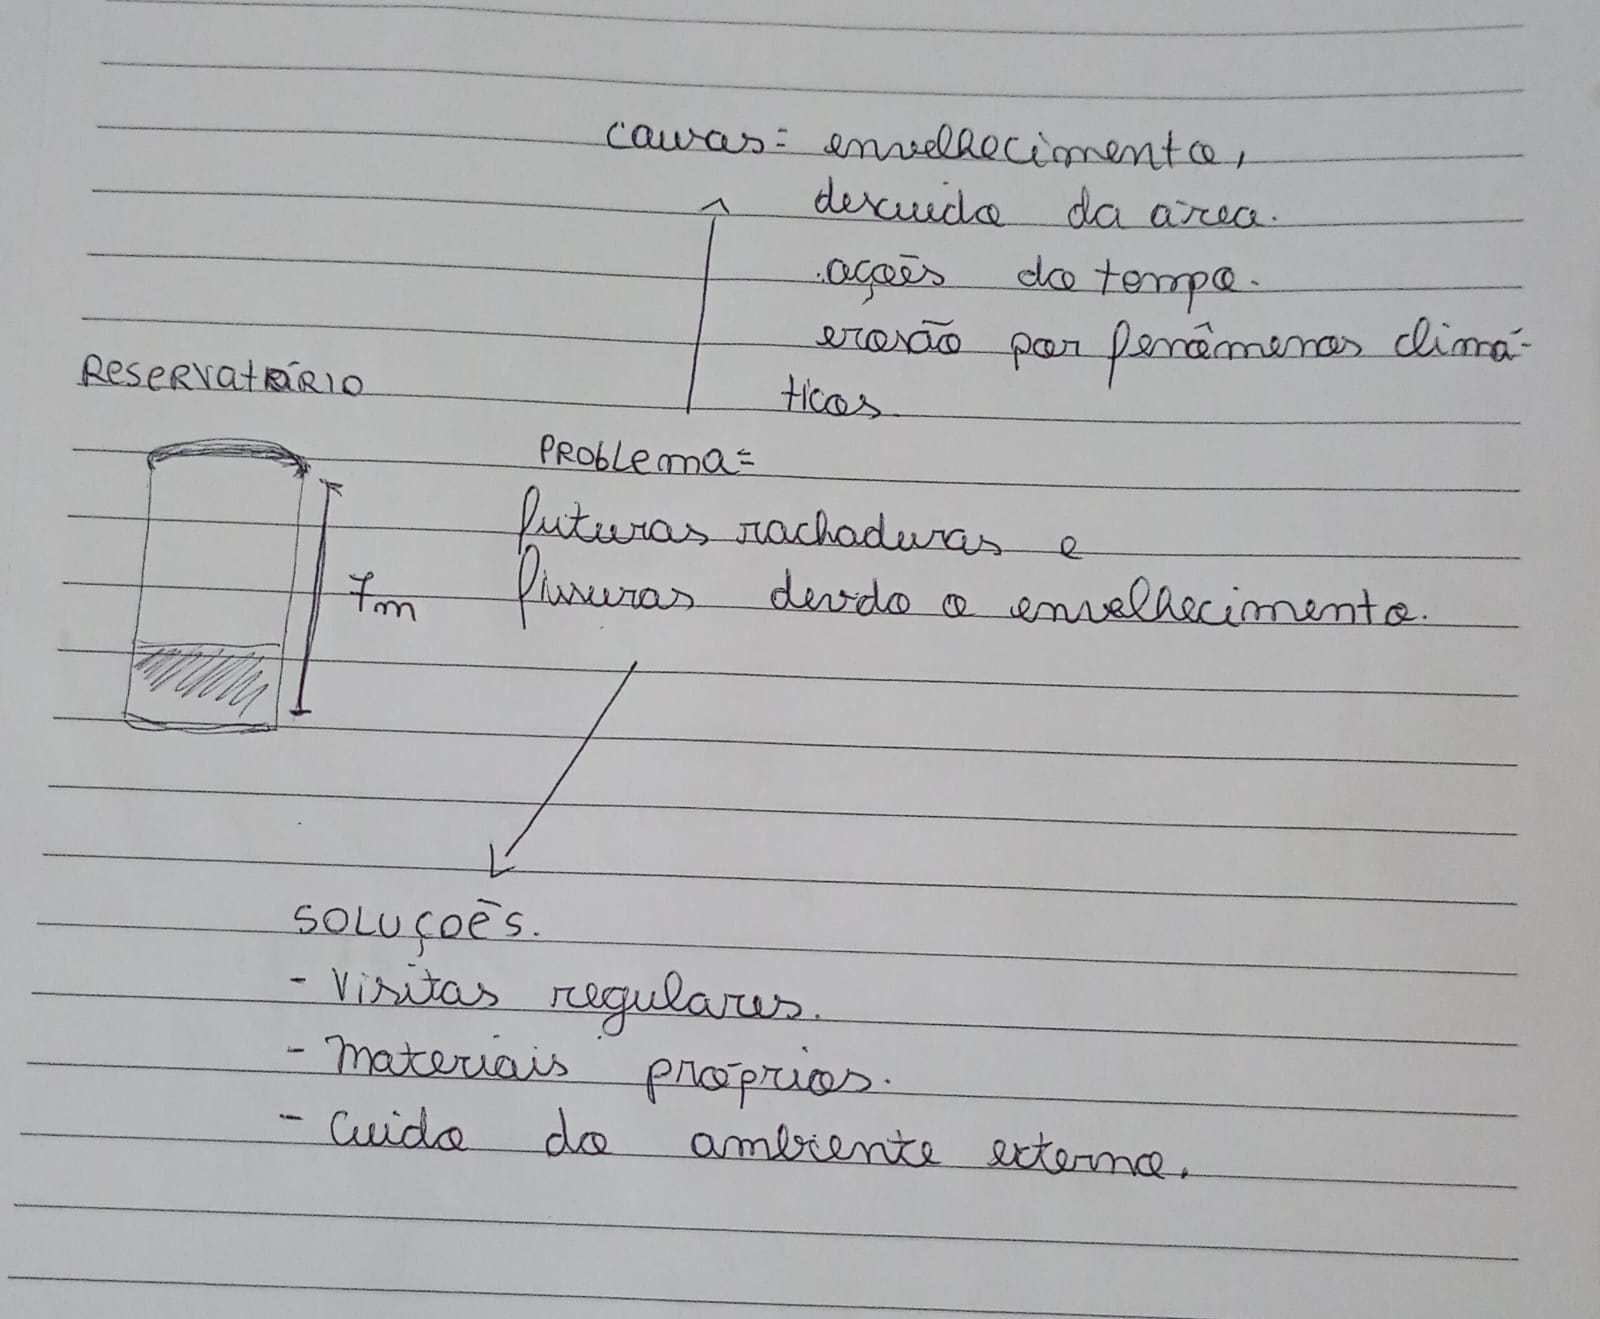 causas= envelhecimento,
descuido da área.
.açoẽs do tempo.
erosão por fenômenos climá-
ticos.
RESERVATÓRIO
PROBLEMA=
futuras rachaduras e
fissuras devdo o envelhecimento.
7m
SOLUÇOẼS.
- Visitas regulares.
- Materiais próprios.
- Cuido do ambiente externo.